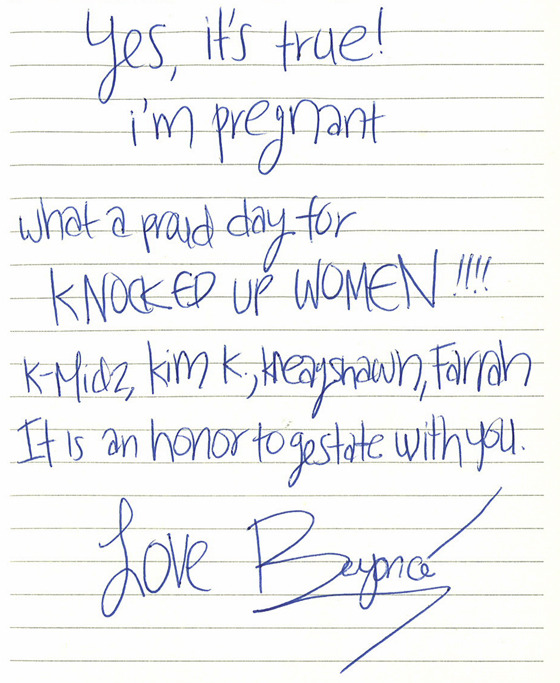 Yes, it's true!
i'm pregnant
what a proud day for
KNOCKED UP WOMEN!!!!
K-Midz, Kim K., Kreayshawn, Farrah
It is an honor to gestate with you.
Love Beyoncé